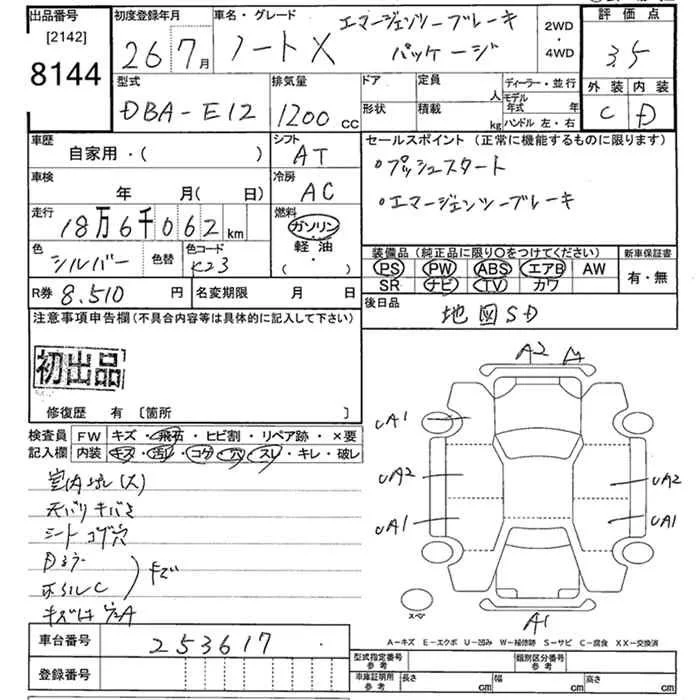 出品番号 初度登録年月 車名・グレード エマージェンシーブレーキ 2WD 評価点
[2142] 26 7月 ノートX パッケージ ・ 4WD 35
8144
型式 排気量 ドア 定員 人 ディーラー・並行 外装 内装
DBA-E12 1200 CC 形状 積載 kg モデル年式 年 ハンドル 左・右 C D
車歴 自家用・( ) シフト AT セールスポイント(正常に機能するものに限ります)
車検 年 月(日) 冷房 AC ・プッシュスタート
走行 18万6千062km 燃料 ガソリン・軽油・( ) ・エマージェンシーブレーキ
色 シルバー 色替 色コード K23 装備品(純正品に限り○をつけてください) 新車保証書
PS PW ABS エアB AW 有・無
SR ナビ TV カワ
R券 8,510円 名変期限 月 日 後日品 地図SD
注意事項申告欄(不具合内容等は具体的に記入して下さい)
初出品
修復歴 有〔箇所 〕
検査員 FW キズ・飛石・ヒビ割・リペア跡・×要
記入欄 内装 キズ・汚れ・コゲ・穴・スレ・キレ・破レ
室内
シート コゲ穴
キズ
A2 A
UA1
UA2 UA2
UA1 UA1
スペア
A1
A-キズ E-エクボ U-凹み W-補修跡 S-サビ C-腐食 XX-交換済
車台番号 253617 型式指定番号 参考 類別区分番号 参考
登録番号 車庫証明用 参考 長さ cm 幅 cm 高さ cm